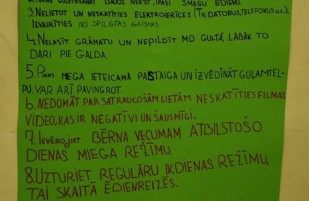 DAUDZ NEĒST, ĪPAŠI SMAGU ĒDIENU.
3. NELIETOT UN NESKATĪTIES ELEKTROIERĪCES (TV, DATORUS, TELEFONUS u.c.)
IZVAIRĪTIES NO SPILGTAS GAISMAS
4. NELASĪT GRĀMATU UN NEPILDĪT MD GULTĀ, LABĀK TO
DARI PIE GALDA.
5. MEGA IETEICAMA PASTAIGA UN IZVĒDINĀT GUĻAMTEL-
PU. VAR ARĪ PAVINGROT.
6. NEDOMĀT PAR SATRAUCOŠĀM LIETĀM NESKATĪTIES FILMAS,
VIDEO, KAS IR NEGATĪVI UN ŠAUSMĪGI.
7. IEVĒROJIET BĒRNA VECUMAM ATBILSTOŠO
DIENAS MIEGA REŽĪMU.
8. UZTURIET REGULĀRU IKDIENAS REŽĪMU,
TAI SKAITĀ ĒDIENREIZĒS.